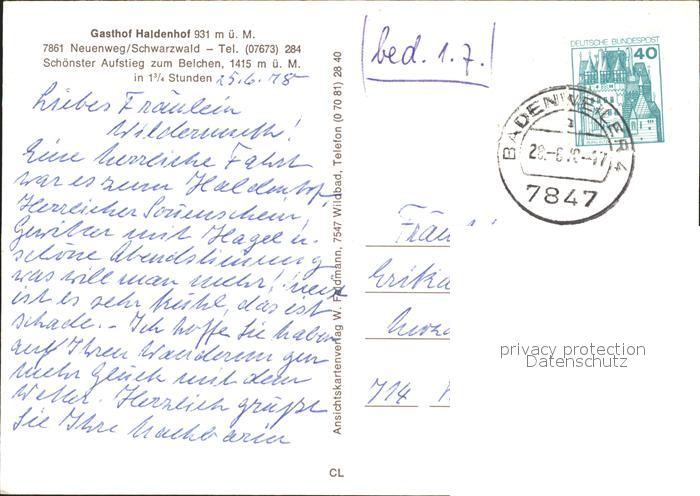 Gasthof Haldenhof 931 m ü. M.
7861 Neuenweg/Schwarzwald – Tel. (07673) 284
Schönster Aufstieg zum Belchen, 1415 m ü. M.
in 1¾ Stunden
25.6.78
Liebes Fräulein
Wildermuth!
Eine herrliche Fahrt
war es zum Haldenhof,
Herrlicher Sonnenschein,
Gewitter mit Hagel u.
schöne Abendstimmung
was will man mehr!
ist es sehr kühl, das ist
schade. – Ich hoffe Sie haben
auf Ihren Wanderungen
mehr Glück mit dem
Wetter. Herzlich grüßt
Sie Ihre Nachbarin
Ansichtskartenverlag W. Feldmann, 7547 Wildbad, Telefon (0 70 81) 28 40
CL
(bed. 1.7.)
DEUTSCHE BUNDESPOST
40
BADENWEILER 4
7847
Fräu
Erika
714
privacy protection
Datenschutz